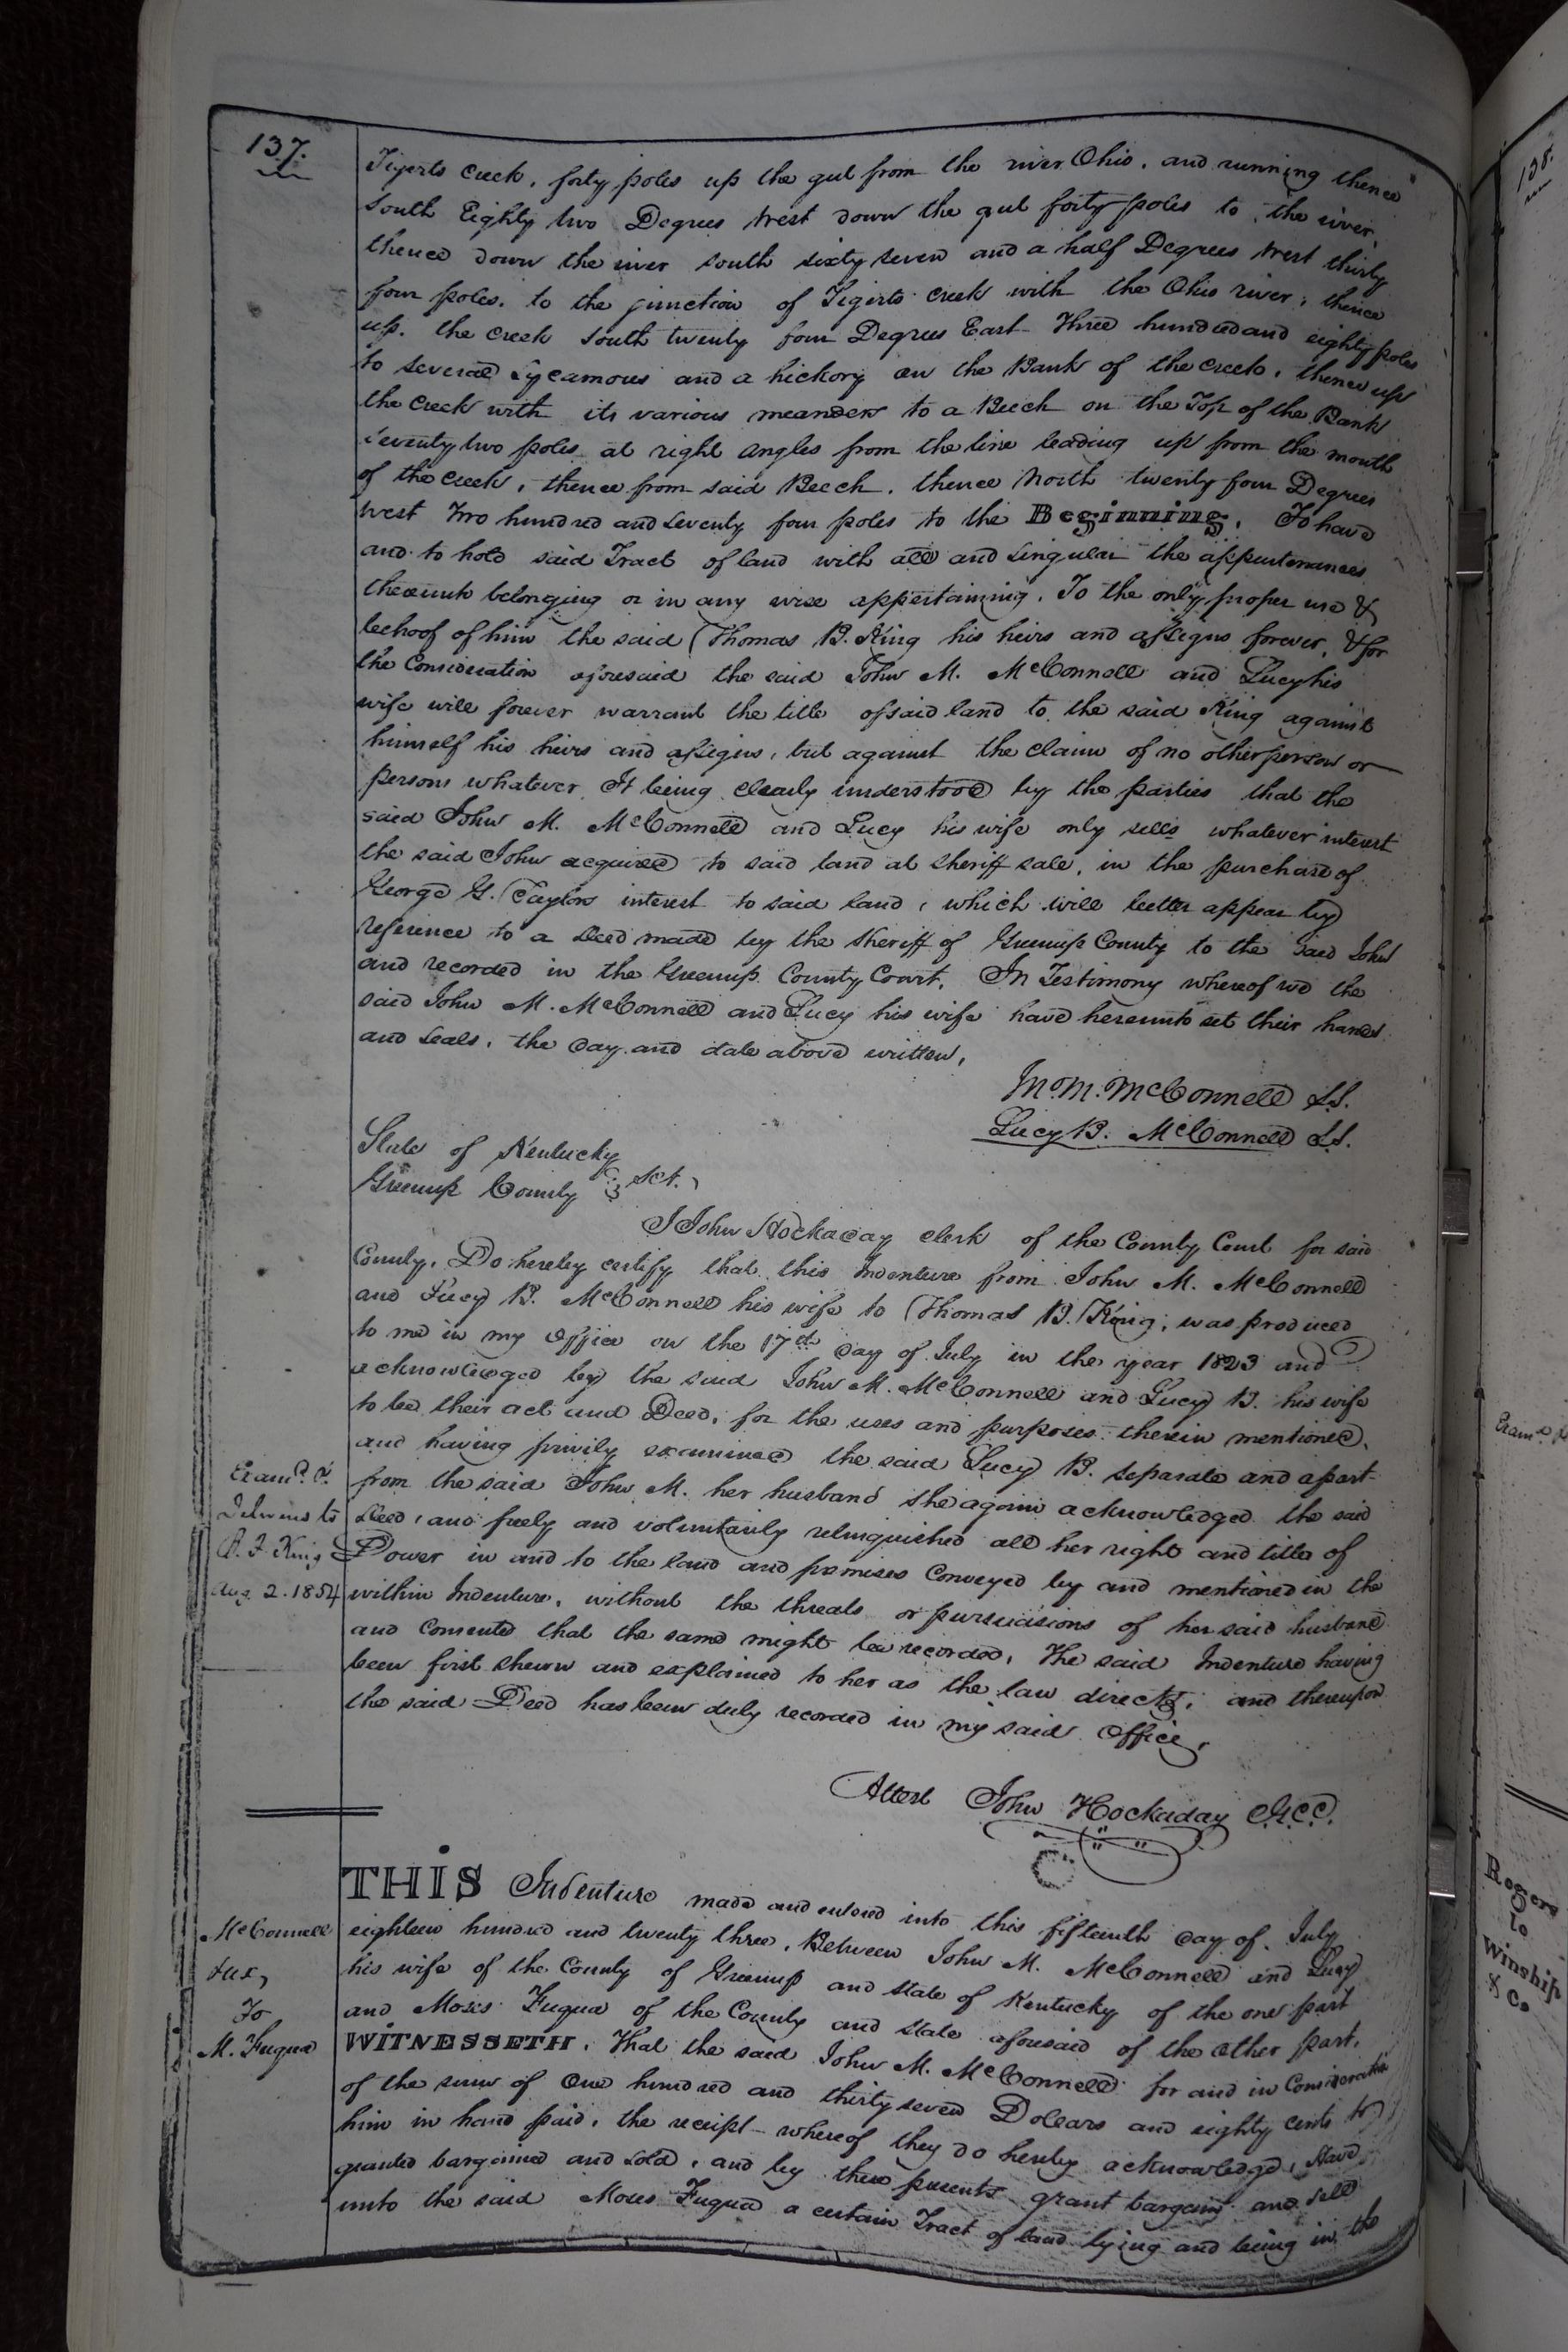 137.
Tigerts creek, forty poles up the gut from the river Ohio, and running thence
South Eighty two Degrees West down the gut forty poles to the river,
thence down the river south sixty seven and a half Degrees West thirty
four poles, to the junction of Tigerts creek with the Ohio river, thence
up the creek South twenty four Degrees East Three hundred and eighty poles
to several Sycamores and a hickory on the Bank of the creek, thence up
the creek with its various meanders to a Beech on the Top of the Bank
seventy two poles at right angles from the line leading up from the mouth
of the creek, thence from said Beech, thence North twenty four Degrees
West Two hundred and seventy four poles to the Beginning. To have
and to hold said Tract of land with all and singular the appurtenances
thereunto belonging or in any wise appertaining. To the only proper use &
behoof of him the said Thomas B. King his heirs and assigns forever, & for
the Consideration aforesaid the said John M. McConnell and Lucy his
wife will forever warrant the title of said land to the said King against
himself his heirs and assigns, but against the claim of no other person or
persons whatever. It being clearly understood by the parties that the
said John M. McConnell and Lucy his wife only sells whatever interest
the said John acquired to said land at sheriff sale, in the purchase of
George G. Taylors interest to said land, which will better appear by
reference to a Deed made by the Sheriff of Greenup County to the said John
and recorded in the Greenup County Court. In Testimony whereof we the
said John M. McConnell and Lucy his wife have hereunto set their hands
and seals, the day and date above written,
M. McConnell L.S.
Lucy B. McConnell L.S.
State of Kentucky
Greenup County } Sct.
I John Hockaday clerk of the County Court for said
County, Do hereby certify that this Indenture from John M. McConnell
and Lucy B. McConnell his wife to Thomas B. King, was produced
to me in my office on the 17th day of July in the year 1823 and
acknowledged by the said John M. McConnell and Lucy B. his wife
to be their act and Deed, for the uses and purposes therein mentioned,
and having privily examined the said Lucy B. separate and apart
from the said John M. her husband she again acknowledged the said
Deed, and freely and voluntarily relinquished all her right and title of
Power in and to the land and premises Conveyed by and mentioned in the
within Indenture, without the threats or pursuasions of her said husband
and Consented that the same might be recorded, The said Indenture having
been first shewn and explained to her as the law directs, and thereupon
the said Deed has been duly recorded in my said Office,
Examd. &
Delivered to
King
Aug. 2. 1854
Attest John Hockaday C.G.C.C.
McConnell
&ux,
To
M. Fuqua
THIS Indenture made and entered into this fifteenth day of July
eighteen hundred and twenty three, Between John M. McConnell and Lucy
his wife of the County of Greenup and State of Kentucky of the one part
and Moses Fuqua of the County and State aforesaid of the other part.
WITNESSETH, That the said John M. McConnell for and in Consideration
of the sum of One hundred and thirty seven Dollars and eighty cents to
him in hand paid, the receipt whereof they do hereby acknowledge, Have
granted bargained and sold, and by these presents grant bargain and sell
unto the said Moses Fuqua a certain Tract of land lying and being in the
138.
Examd
Rogers
to
Winship
& Co